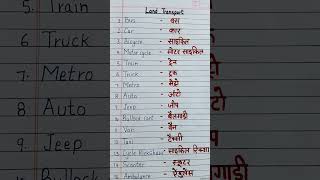 Land Transport
1. Bus - बस
2. Car - कार
3. Bicycle - साइकिल
4. Motorcycle - मोटर साइकिल
5. Train - ट्रेन
6. Truck - ट्रक
7. Metro - मेट्रो
8. Auto - ऑटो
9. Jeep - जीप
10. Bullock cart - बैलगाड़ी
11. Van - वैन
12. Taxi - टैक्सी
13. Cycle Rickshaw - साइकिल रिक्शा
14. Scooter - स्कूटर
15. Ambulance -
5. Train
6. Truck
7. Metro
8. Auto
9. Jeep